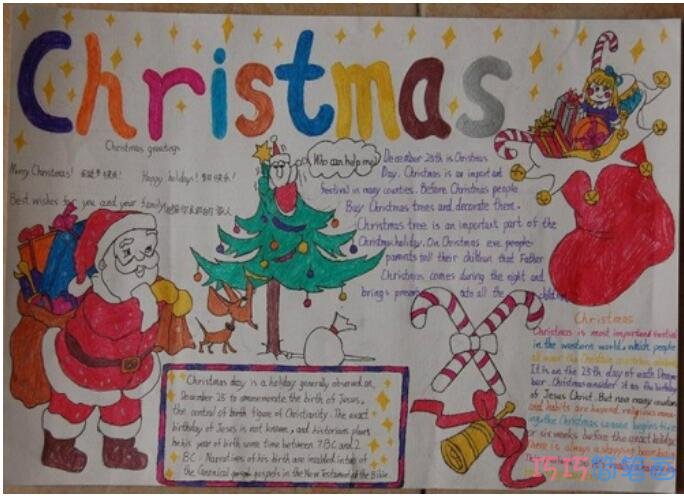 Christmas
Christmas greetings
Merry Christmas! 圣诞快乐!
Happy holidays! 节日快乐!
Best wishes for you and your family
Who can help me!
December 25th is Christmas
Day. Christmas is an important
festival in many counties. Before Christmas people
Buy Christmas trees and decorate them.
Christmas tree is an important part of the
Christmas holiday. On Christmas eve people
parents tell their children that Father
Christmas comes during the night and
brings all the
Christmas
Christmas is most important festival
in the western world, which people
It is on the 25th day of each Decem
ber. Christians consider it as the birthday
of Jesus Christ. But now many customs
and habits are beyond religious meaning
the Christmas season begins five
or six weeks before the exact holiday
there is always a shopping boom
Christmas day is a holiday generally observed on
December 25 to commemorate the birth of Jesus,
the central of birth figure of Christianity. The exact
birthday of Jesus is not known, and historians place
his year of birth some time between 7 BC and 2
BC. Narratives of his birth are included in two of
the Canonical gospels in the New Testament of the Bible.
巧巧简笔画